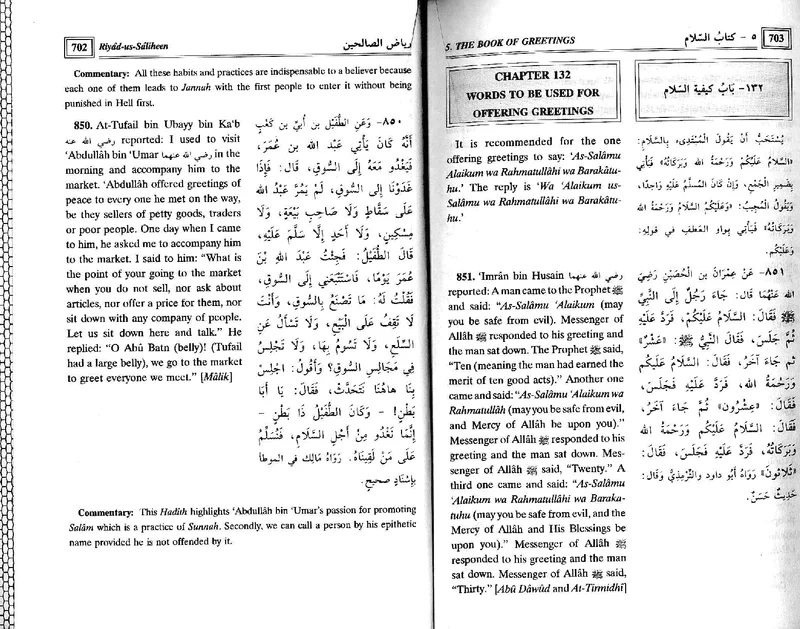 702 Riyâd-us-Sâliheen رياض الصالحين
Commentary: All these habits and practices are indispensable to a believer because
each one of them leads to Jannah with the first people to enter it without being
punished in Hell first.
850. At-Tufail bin Ubayy bin Ka'b
رضي الله عنه reported: I used to visit
'Abdullâh bin 'Umar رضي الله عنهما in the
morning and accompany him to the
market. 'Abdullâh offered greetings of
peace to every one he met on the way,
be they sellers of petty goods, traders
or poor people. One day when I came
to him, he asked me to accompany him
to the market. I said to him: "What is
the point of your going to the market
when you do not sell, nor ask about
articles, nor offer a price for them, nor
sit down with any company of people.
Let us sit down here and talk." He
replied: "O Abû Batn (belly)! (Tufail
had a large belly), we go to the market
to greet everyone we meet." [Mâlik]
٨٥٠- وَعَنِ الطُّفَيْلِ بن أُبَيِّ بن كَعْبٍ
أَنَّهُ كَانَ يَأْتِي عَبْدَ الله بن عُمَرَ،
فَيَغْدُو مَعَهُ إِلَى السُّوقِ، قَالَ: فَإِذَا
غَدَوْنَا إِلَى السُّوقِ، لَمْ يَمُرَّ عَبْدُ الله
عَلَى سَقَّاطٍ وَلَا صَاحِبِ بَيْعَةٍ، وَلَا
مِسْكِينٍ، وَلَا أَحَدٍ إِلَّا سَلَّمَ عَلَيْهِ،
قَالَ الطُّفَيْلُ: فَجِئْتُ عَبْدَ الله بْنَ
عُمَرَ يَوْمًا، فَاسْتَتْبَعَنِي إِلَى السُّوقِ،
فَقُلْتُ لَهُ: مَا تَصْنَعُ بِالسُّوقِ، وَأَنْتَ
لَا تَقِفُ عَلَى الْبَيْعِ، وَلَا تَسْأَلُ عَنِ
السِّلَعِ، وَلَا تَسُومُ بِهَا، وَلَا تَجْلِسُ
فِي مَجَالِسِ السُّوقِ؟ وَأَقُولُ: اجْلِسْ
بِنَا هَاهُنَا نَتَحَدَّثْ، فَقَالَ: يَا أَبَا
بَطْنٍ! - وَكَانَ الطُّفَيْلُ ذَا بَطْنٍ -
إِنَّمَا نَغْدُو مِنْ أَجْلِ السَّلَامِ، فَنُسَلِّمُ
عَلَى مَنْ لَقِينَاهُ. رَوَاهُ مَالِك في المُوطَّأ
بِإِسْنَادٍ صحيحٍ.
Commentary: This Hadith highlights 'Abdullâh bin 'Umar's passion for promoting
Salâm which is a practice of Sunnah. Secondly, we can call a person by his epithetic
name provided he is not offended by it.
5. THE BOOK OF GREETINGS ٥ - كتابُ السَّلام 703
CHAPTER 132
WORDS TO BE USED FOR
OFFERING GREETINGS
١٣٢- بَابُ كيفية السَّلام
It is recommended for the one
offering greetings to say: 'As-Salâmu
Alaikum wa Rahmatullâhi wa Barakâtu-
hu.' The reply is 'Wa 'Alaikum us-
Salâmu wa Rahmatullâhi wa Barakâtu-
hu.'
يُسْتَحَبُّ أَنْ يَقُولَ المُبْتَدِىءُ بِالسَّلَامِ:
«السَّلَامُ عَلَيْكُمْ وَرَحْمَةُ الله وَبَرَكَاتُهُ» فَيَأْتِي
بِضَمِيرِ الْجَمْعِ، وَإِنْ كَانَ المُسَلَّمُ عَلَيْهِ وَاحِدًا،
وَيَقُولُ المُجِيبُ: «وَعَلَيْكُمُ السَّلَامُ وَرَحْمَةُ الله
وَبَرَكَاتُهُ» فَيَأْتِي بِوَاوِ العَطفِ فِي قولِهِ:
وَعَلَيْكُم.
851. 'Imrân bin Husain رضي الله عنهما
reported: A man came to the Prophet ﷺ
and said: "As-Salâmu 'Alaikum (may
you be safe from evil). Messenger of
Allâh ﷺ responded to his greeting and
the man sat down. The Prophet ﷺ said,
"Ten (meaning the man had earned the
merit of ten good acts)." Another one
came and said: "As-Salâmu 'Alaikum wa
Rahmatullâh (may you be safe from evil,
and Mercy of Allâh be upon you)."
Messenger of Allâh ﷺ responded to his
greeting and the man sat down. Mes-
senger of Allâh ﷺ said, "Twenty." A
third one came and said: "As-Salâmu
'Alaikum wa Rahmatullâhi wa Baraka-
tuhu (may you be safe from evil, and the
Mercy of Allâh and His Blessings be
upon you)." Messenger of Allâh ﷺ
responded to his greeting and the man
sat down. Messenger of Allâh ﷺ said,
"Thirty." [Abû Dâwûd and At-Tirmidhî]
٨٥١- عَنْ عِمْرَانَ بن الْحُصَيْنِ رَضِيَ
الله عَنْهُمَا قَالَ: جَاءَ رَجُلٌ إِلَى النَّبِيِّ
ﷺ فَقَالَ: السَّلَامُ عَلَيْكُمْ، فَرَدَّ عَلَيْهِ
ثُمَّ جَلَسَ، فَقَالَ النَّبِيُّ ﷺ: «عَشْرٌ»
ثم جَاءَ آخَرُ، فَقَالَ: السَّلَامُ عَلَيكُم
وَرَحْمَةُ الله، فَرَدَّ عَلَيْهِ فَجَلَسَ،
فَقَالَ: «عِشْرُون» ثُمَّ جَاءَ آخَرُ،
فَقَالَ: السَّلَامُ عَلَيْكُم وَرَحْمَةُ الله
وَبَرَكَاتُهُ، فَرَدَّ عَلَيْهِ فَجَلَسَ، فَقَالَ:
«ثَلَاثُونَ» رَوَاهُ أَبُو داود والتِّرْمِذِيُّ وَقَالَ:
حَدِيثٌ حَسَنٌ.